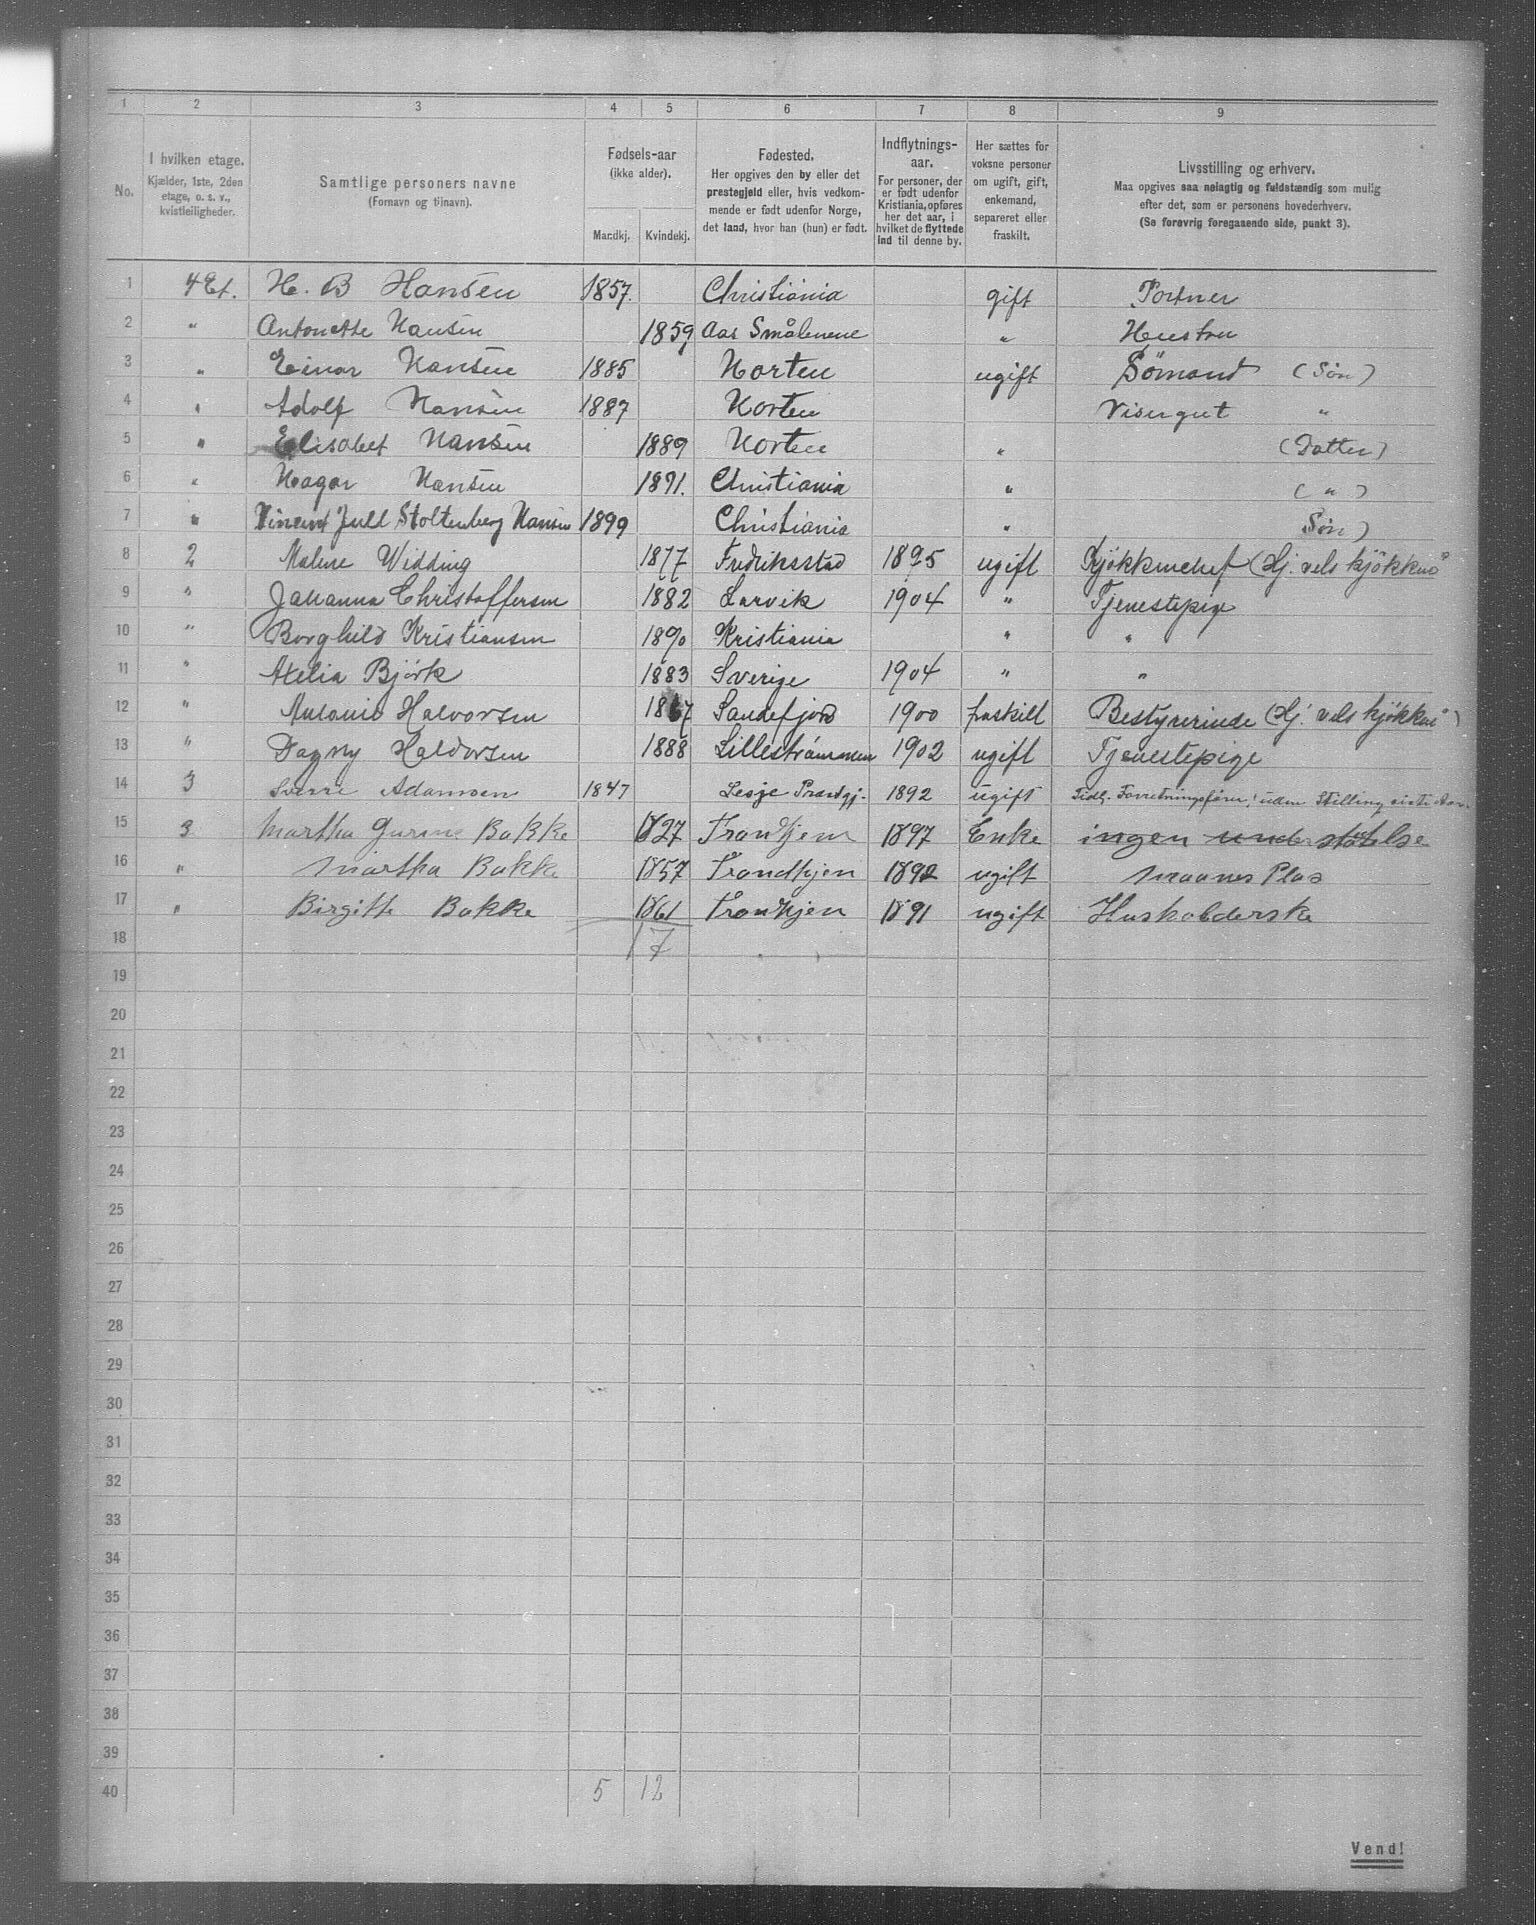 1 2 3 4 5 6 7 8 9
No.
I hvilken etage.
Kjælder, 1ste, 2den
etage, o. s. v.,
kvistleiligheder.
Samtlige personers navne
(Fornavn og tilnavn).
Fødsels-aar
(ikke alder).
Mandkj. Kvindekj.
Fødested.
Her opgives den by eller det
prestegjeld eller, hvis vedkom-
mende er født udenfor Norge,
det land, hvor han (hun) er født.
Indflytnings-
aar.
For personer, der
er født udenfor
Kristiania, opføres
her det aar, i
hvilket de flyttede
ind til denne by.
Her sættes for
voksne personer
om ugift, gift,
enkemand,
separeret eller
fraskilt.
Livsstilling og erhverv.
Maa opgives saa nøiagtig og fuldstændig som mulig
efter det, som er personens hovederhverv.
(Se forøvrig foregaaende side, punkt 3).
1 4 Et. H. B Hansen 1857. Christiania gift Portner
2 " Antonette Hansen 1859 Aas Smålenene " Hustru
3 " Einar Hansen 1885 Horten ugift Sömand (Søn)
4 " Adolf Hansen 1887 Horten Visergut "
5 " Elisabet Hansen 1889 Horten " (Datter)
6 " Hagar Hansen 1891. Christiania " ( " )
7 " Vincent Jull Stoltenberg Hansen 1899 Christiania " Søn)
8 2 Malene Widding 1877 Fredriksstad 1895 ugift Kjökkenchef (Hj. vels kjökken"
9 " Johanna Christoffersen 1882 Larvik 1904 " Tjenestepige
10 " Borghild Kristiansen 1890 Kristiania " "
11 " Axelia Björk 1883 Sverige 1904 " "
12 " Melanie Halvorsen 1867 Sandefjord 1900 fraskilt Bestyrerinde (Hj. vels kjökken")
13 " Dagny Haldorsen 1888 Lillestrømmen 1902 ugift Tjenestepige
14 3 Sverre Adamsen 1847 Lesje Præstgj. 1892 ugift Tidl. Forretningsfører, uden Stilling
15 3 Martha Gurine Bakke 1827 Trondhjem 1897 Enke ingen understøtelse
16 " Martha Bakke 1857 Trondhjem 1892 ugift
17 " Birgitte Bakke 1861 Trondhjem 1891 ugift Husholderske
18 17
19
20
21
22
23
24
25
26
27
28
29
30
31
32
33
34
35
36
37
38
39
40 5 12
Vend!